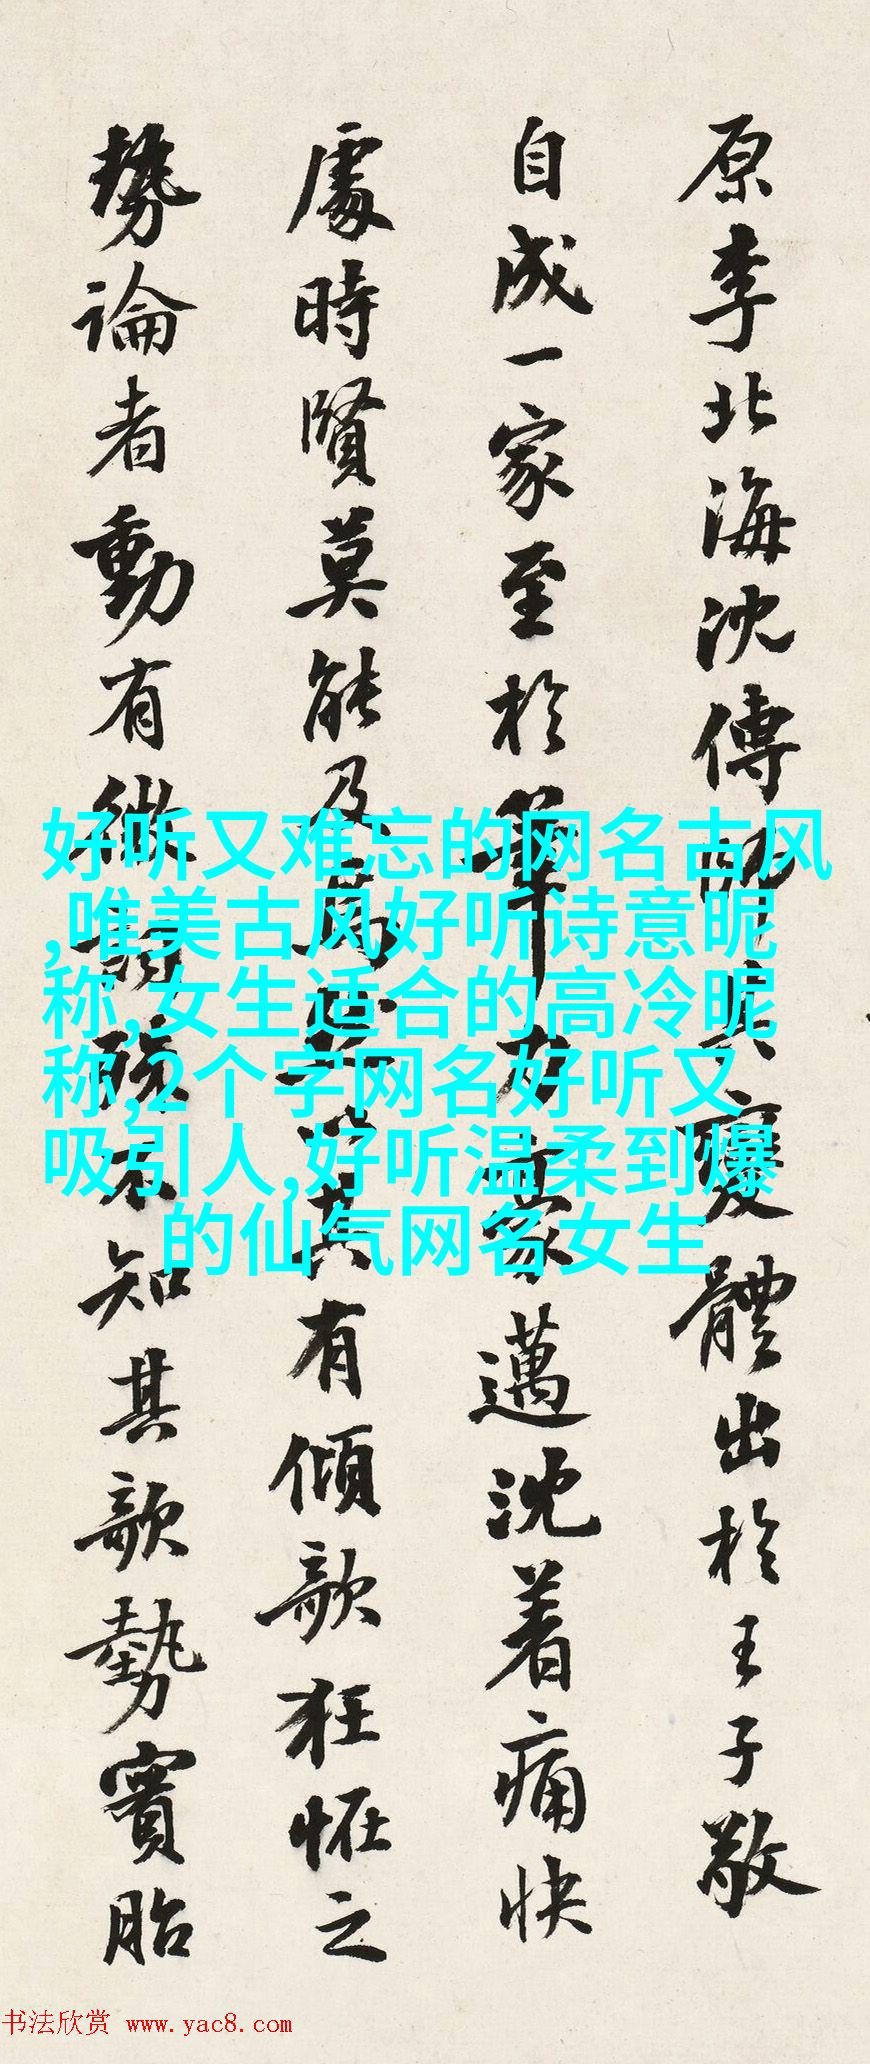 原李北海沈傳師其變體出於王子敬
自成一家至於筆力豪邁沈着痛快
處時賢莫能及以其有傾欹狂怪之
勢論者動有微詞殊不知其欹勢實胎
好听又难忘的网名古风
,唯美古风好听诗意昵
称,女生适合的高冷昵
称,2个字网名好听又
吸引人,好听温柔到爆
的仙气网名女生
书法欣赏 www.yac8.com